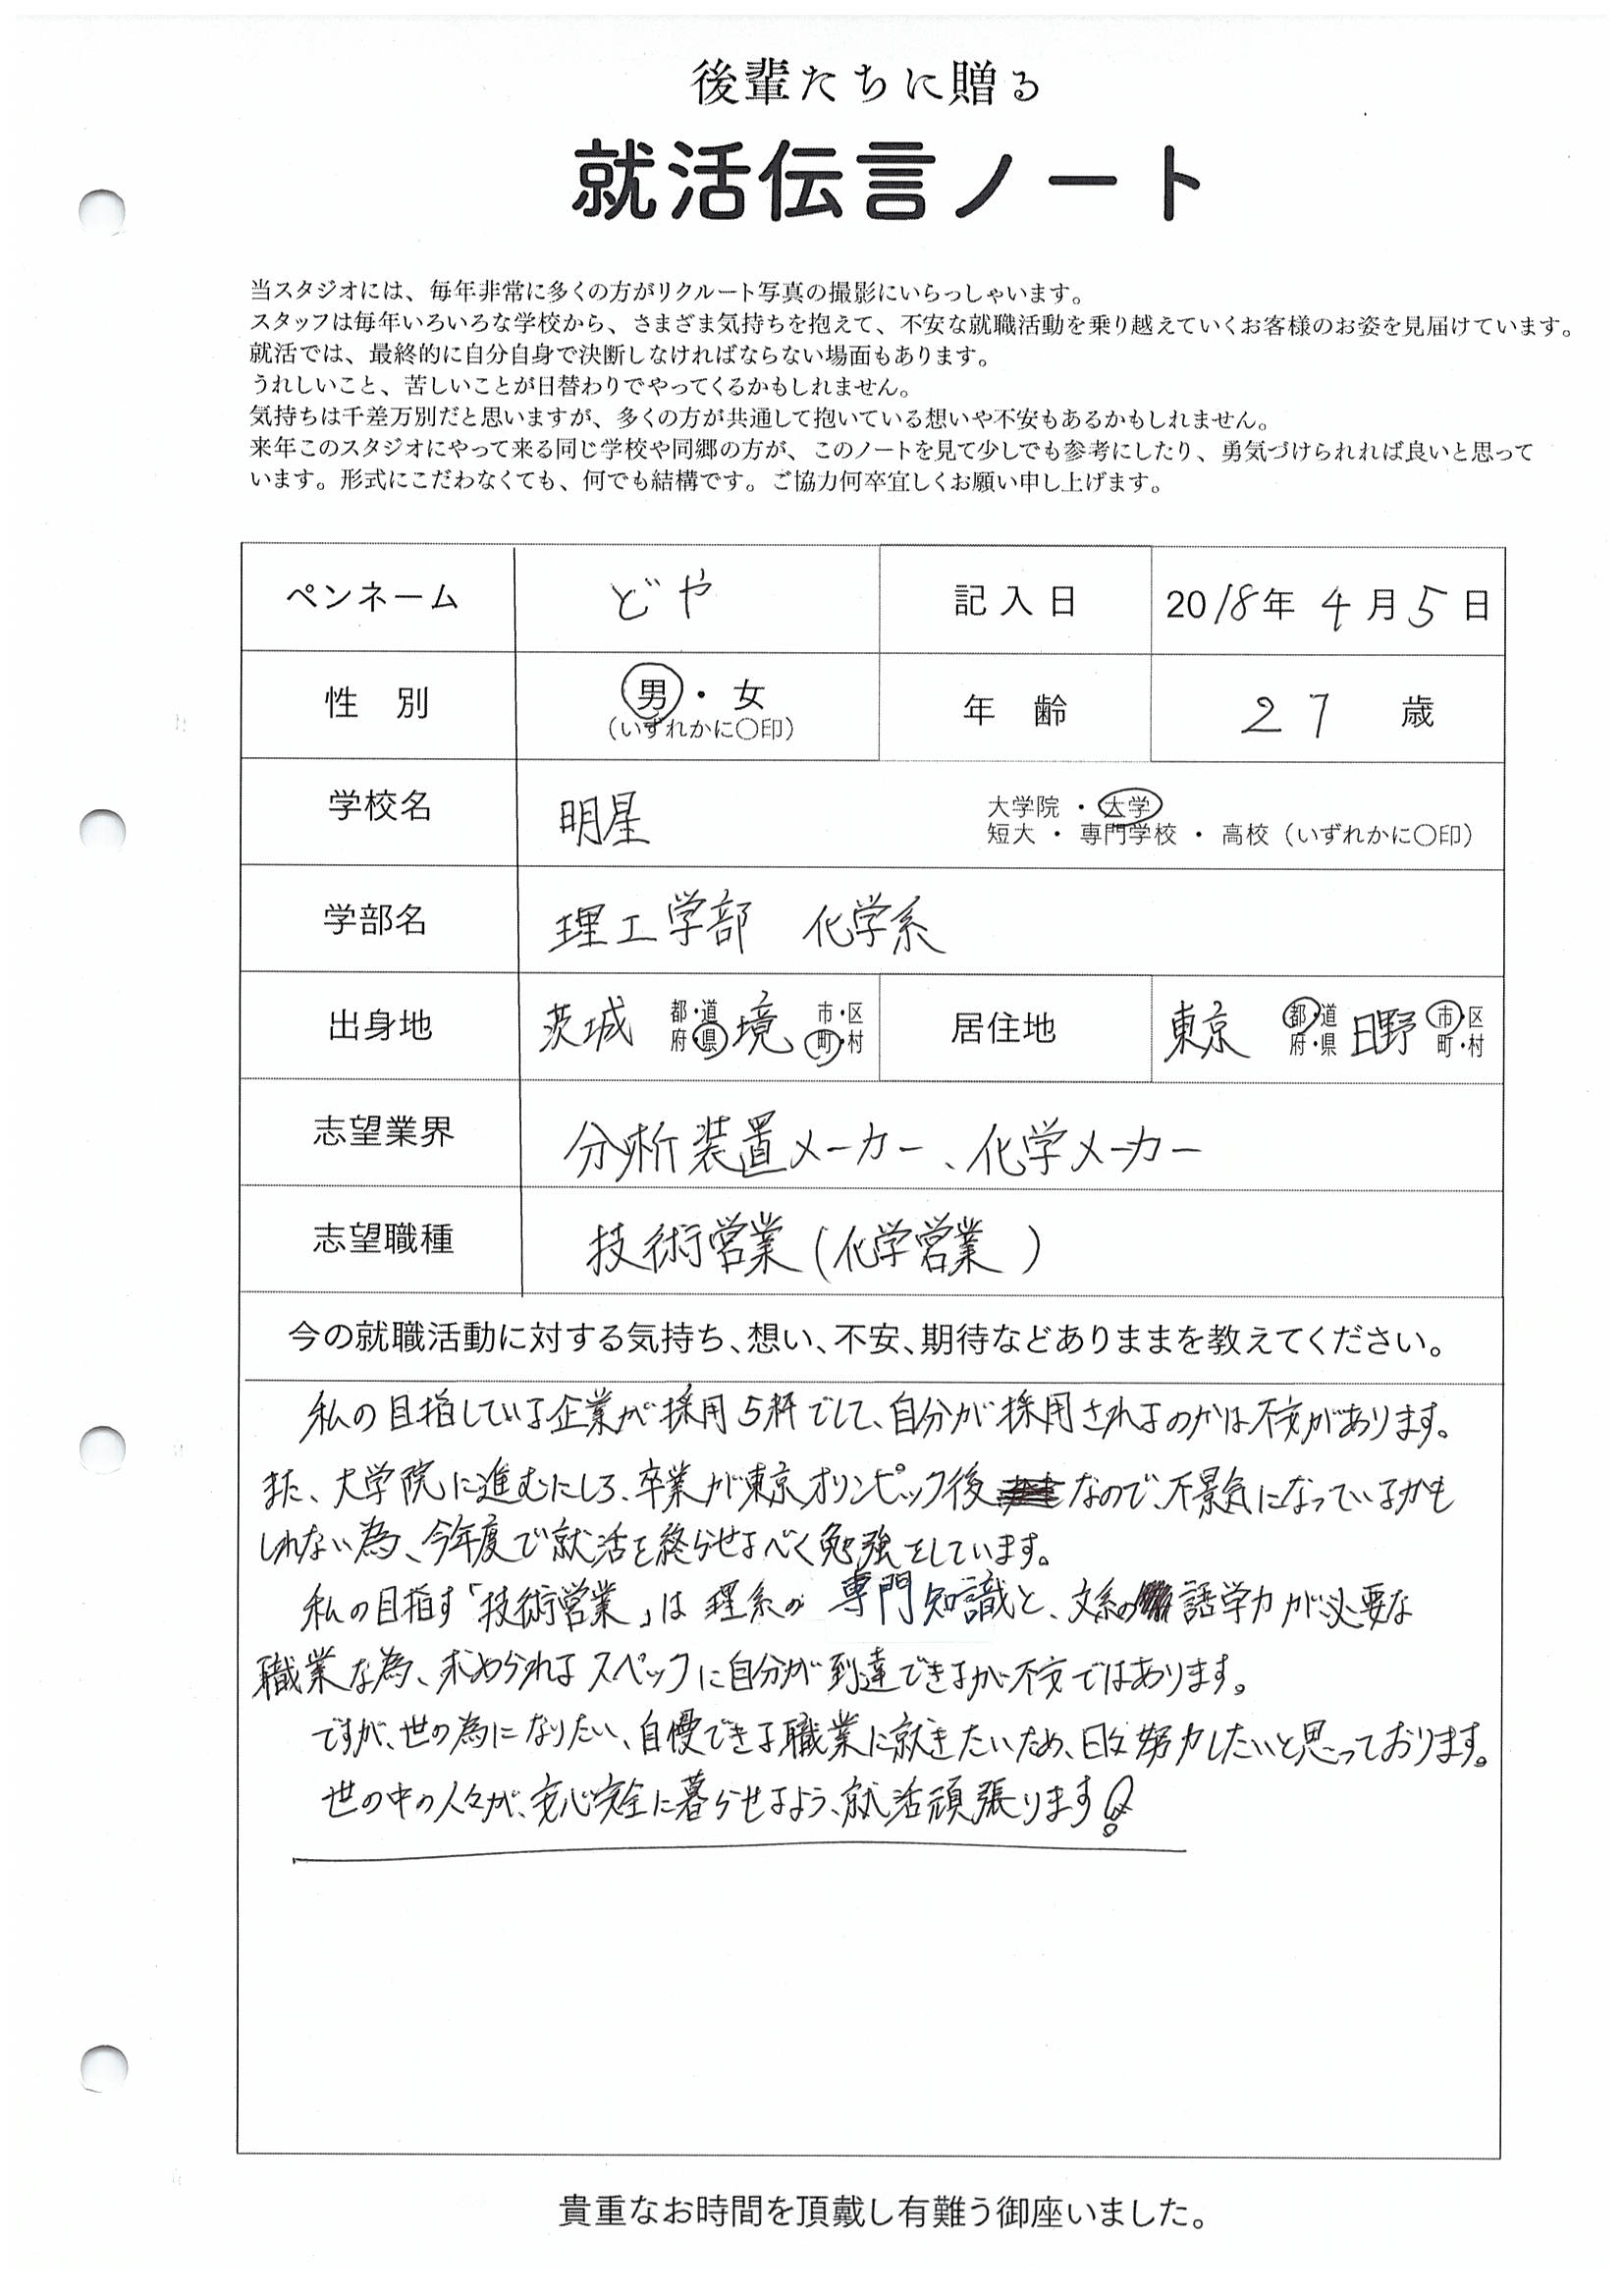 後輩たちに贈る
就活伝言ノート
当スタジオには、毎年非常に多くの方がリクルート写真の撮影にいらっしゃいます。
スタッフは毎年いろいろな学校から、さまざま気持ちを抱えて、不安な就職活動を乗り越えていくお客様のお姿を見届けています。
就活では、最終的に自分自身で決断しなければならない場面もあります。
うれしいこと、苦しいことが日替わりでやってくるかもしれません。
気持ちは千差万別だと思いますが、多くの方が共通して抱いている想いや不安もあるかもしれません。
来年このスタジオにやって来る同じ学校や同郷の方が、このノートを見て少しでも参考にしたり、勇気づけられれば良いと思って
います。形式にこだわなくても、何でも結構です。ご協力何卒宜しくお願い申し上げます。
ペンネーム どや 記入日 2018年 4月5日
性 別 男・女 (いずれかに〇印) 年 齢 27 歳
学校名 明星 大学院・大学
短大・専門学校・高校（いずれかに〇印）
学部名 理工学部 化学系
出身地 茨城 都・道府・県 境 市・区町・村 居住地 東京 都・道府・県 日野 市・区町・村
志望業界 分析装置メーカー、化学メーカー
志望職種 技術営業(化学営業)
今の就職活動に対する気持ち、想い、不安、期待などありままを教えてください。
私の目指している企業が採用5枠でして、自分が採用されるのかは不安があります。
また、大学院に進むにしろ、卒業が東京オリンピック後なので、不景気になっているかも
しれない為、今年度で就活を終らせるべく勉強をしています。
私の目指す「技術営業」は理系の専門知識と、文系の語学力が必要な
職業な為、求められるスペックに自分が到達できるか不安ではあります。
ですが、世の為になりたい、自慢できる職業に就きたいため、日々努力したいと思っております。
世の中の人々が、安心安全に暮らせるよう、就活頑張ります!
貴重なお時間を頂戴し有難う御座いました。